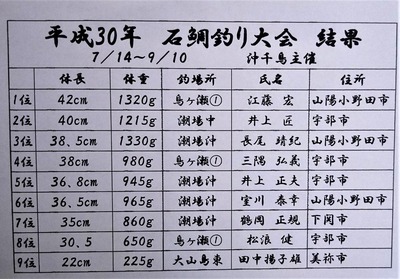 平成30年 石鯛釣り大会 結果
7/14~9/10 沖千鳥主催
体長 体重 釣場所 氏名 住所
1位 42cm 1320g 鳥ヶ瀬① 江藤 宏 山陽小野田市
2位 40cm 1215g 潮場中 井上 匠 宇部市
3位 38,5cm 1330g 潮場沖 長尾 靖紀 山陽小野田市
4位 38cm 980g 鳥ヶ瀬① 三隅 弘義 宇部市
5位 36,8cm 945g 潮場沖 井上 正夫 宇部市
6位 36,5cm 965g 潮場沖 室川 泰幸 山陽小野田市
7位 35cm 860g 潮場沖 鶴岡 正規 下関市
8位 30,5 650g 鳥ヶ瀬① 松浪 健 宇部市
9位 22cm 225g 大山島東 田中揚子雄 美祢市